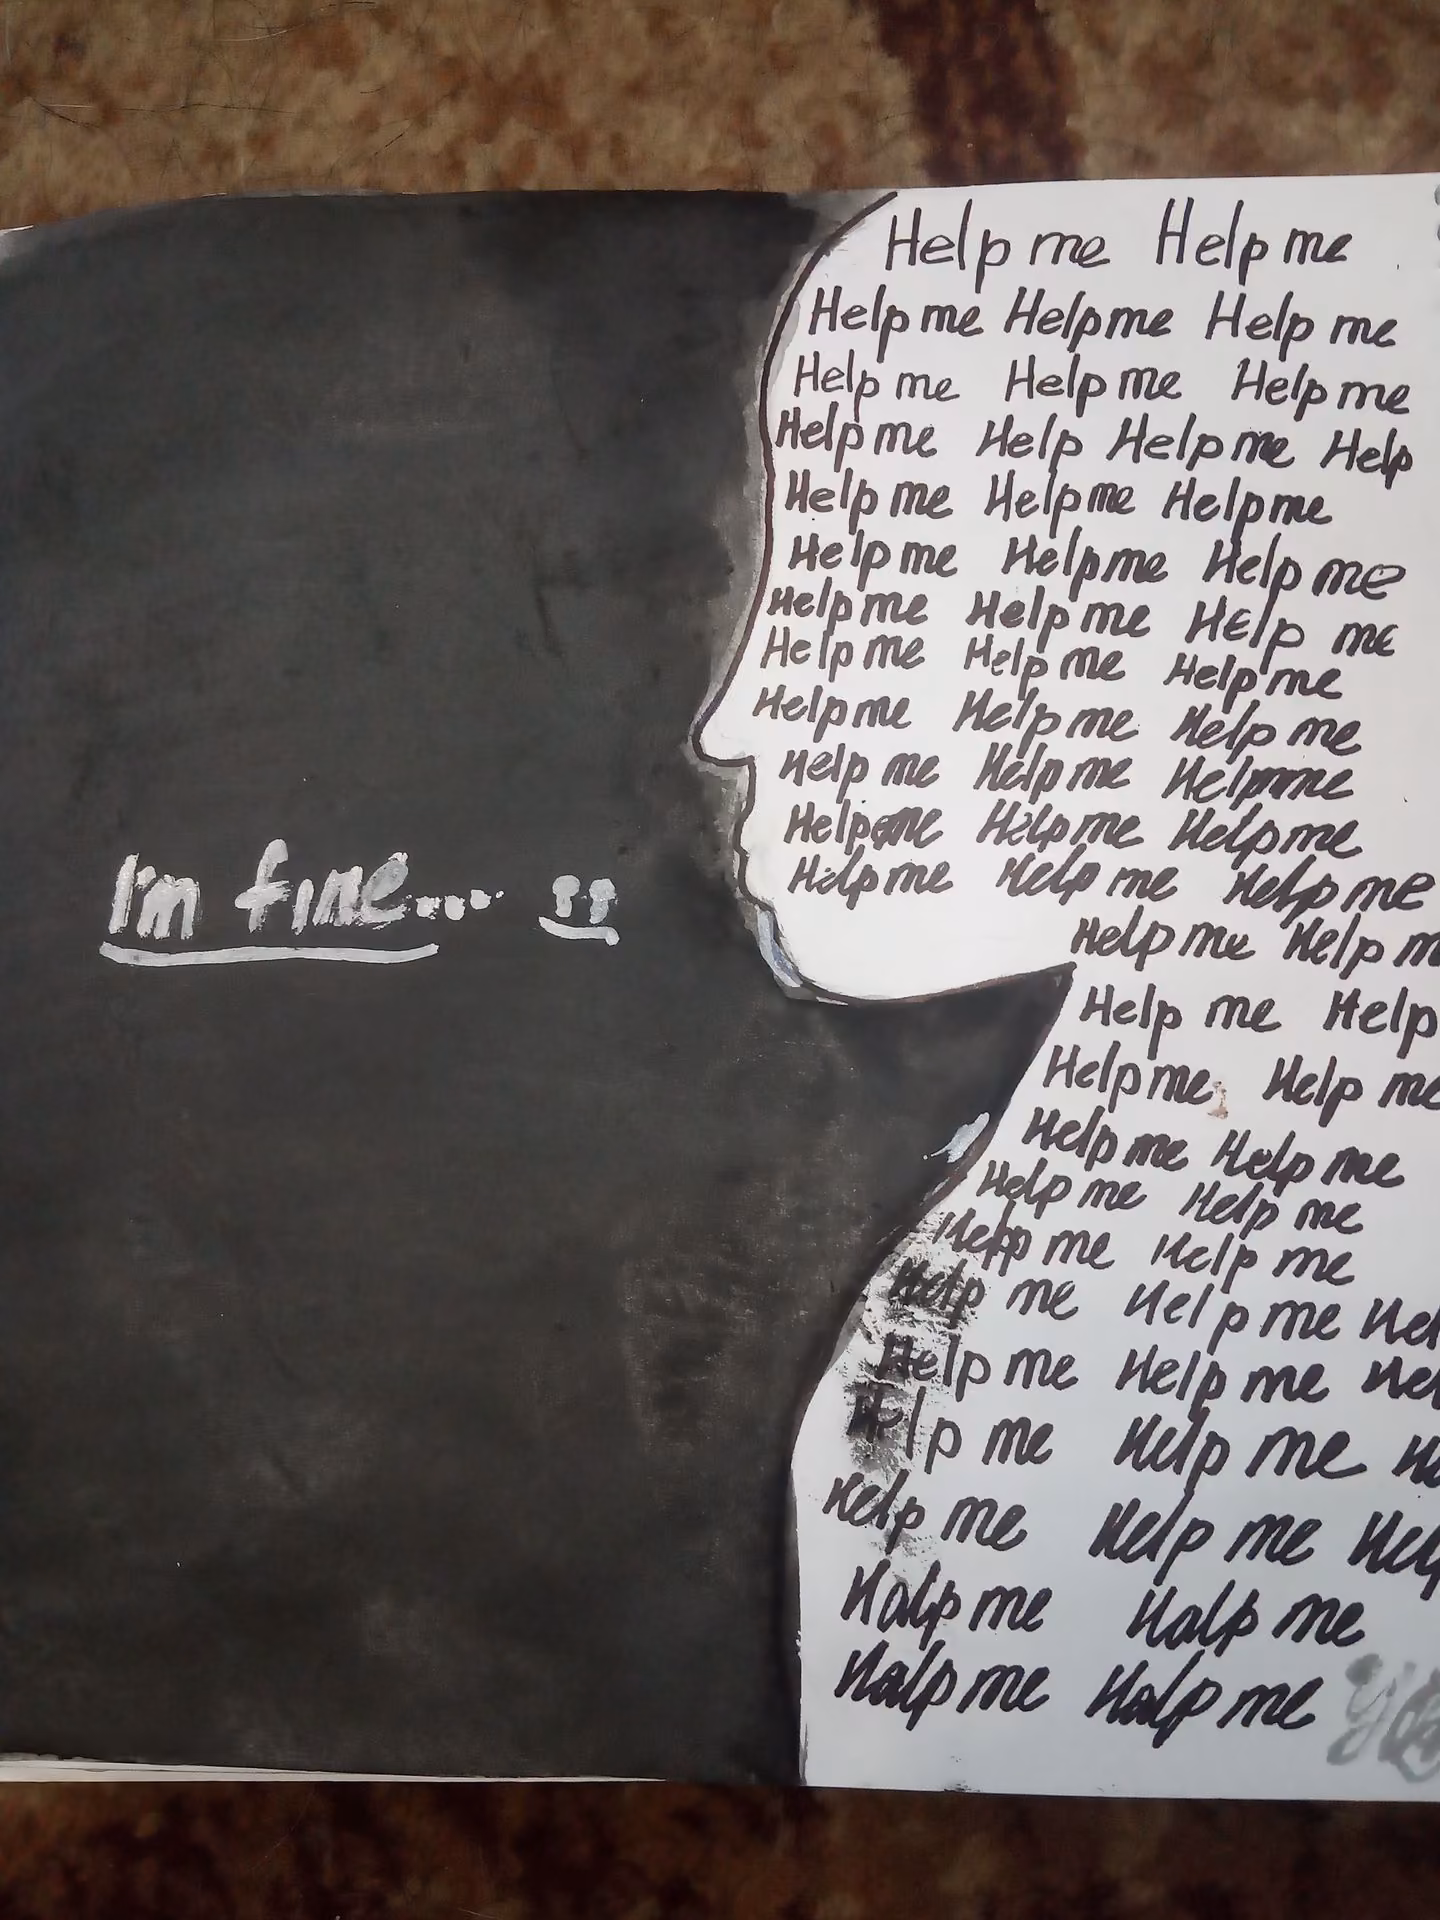 I'm fine....
Help me Help me
Help me Help me Help me
Help me Help me Help me
Help me Help Help me Help
Help me Help me Help me
Help me Help me Help me
Help me Help me Help me
Help me Help me Help me
Help me Help me Help me
Help me Help me Helpmme
Help me Help me Help me
Help me Help me Help me
Help me Help m
Help me Help
Help me Help me
Help me Help me
Help me Help me
Help me Help me
Help me Help me Hel
Help me Help me Hel
Help me Help me
Help me Help me Help
Halp me Halp me
Halp me Halp me